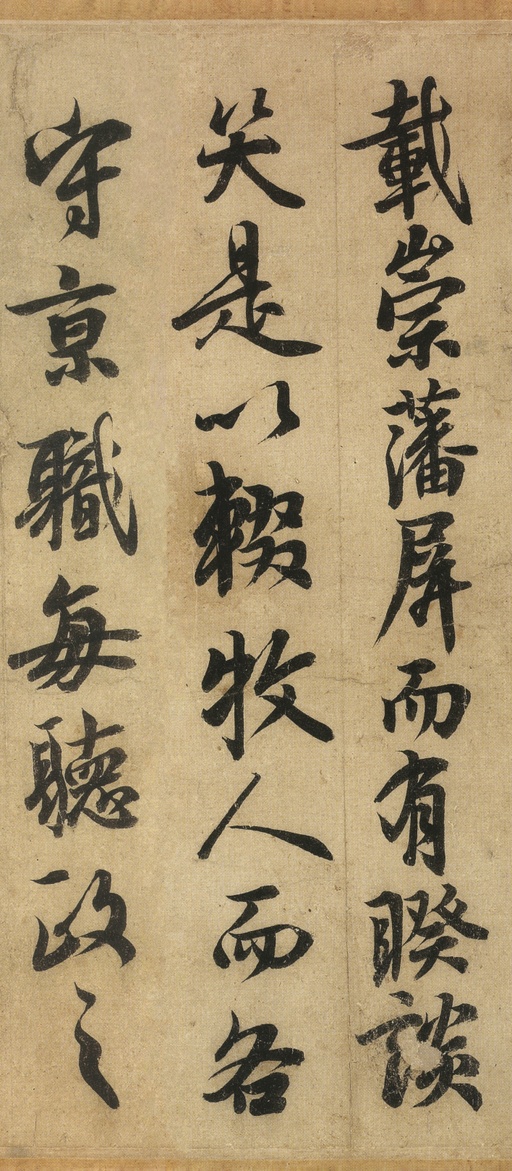 載崇藩屏而有暌談
笑是以輟牧人而各
守京職每聽政之